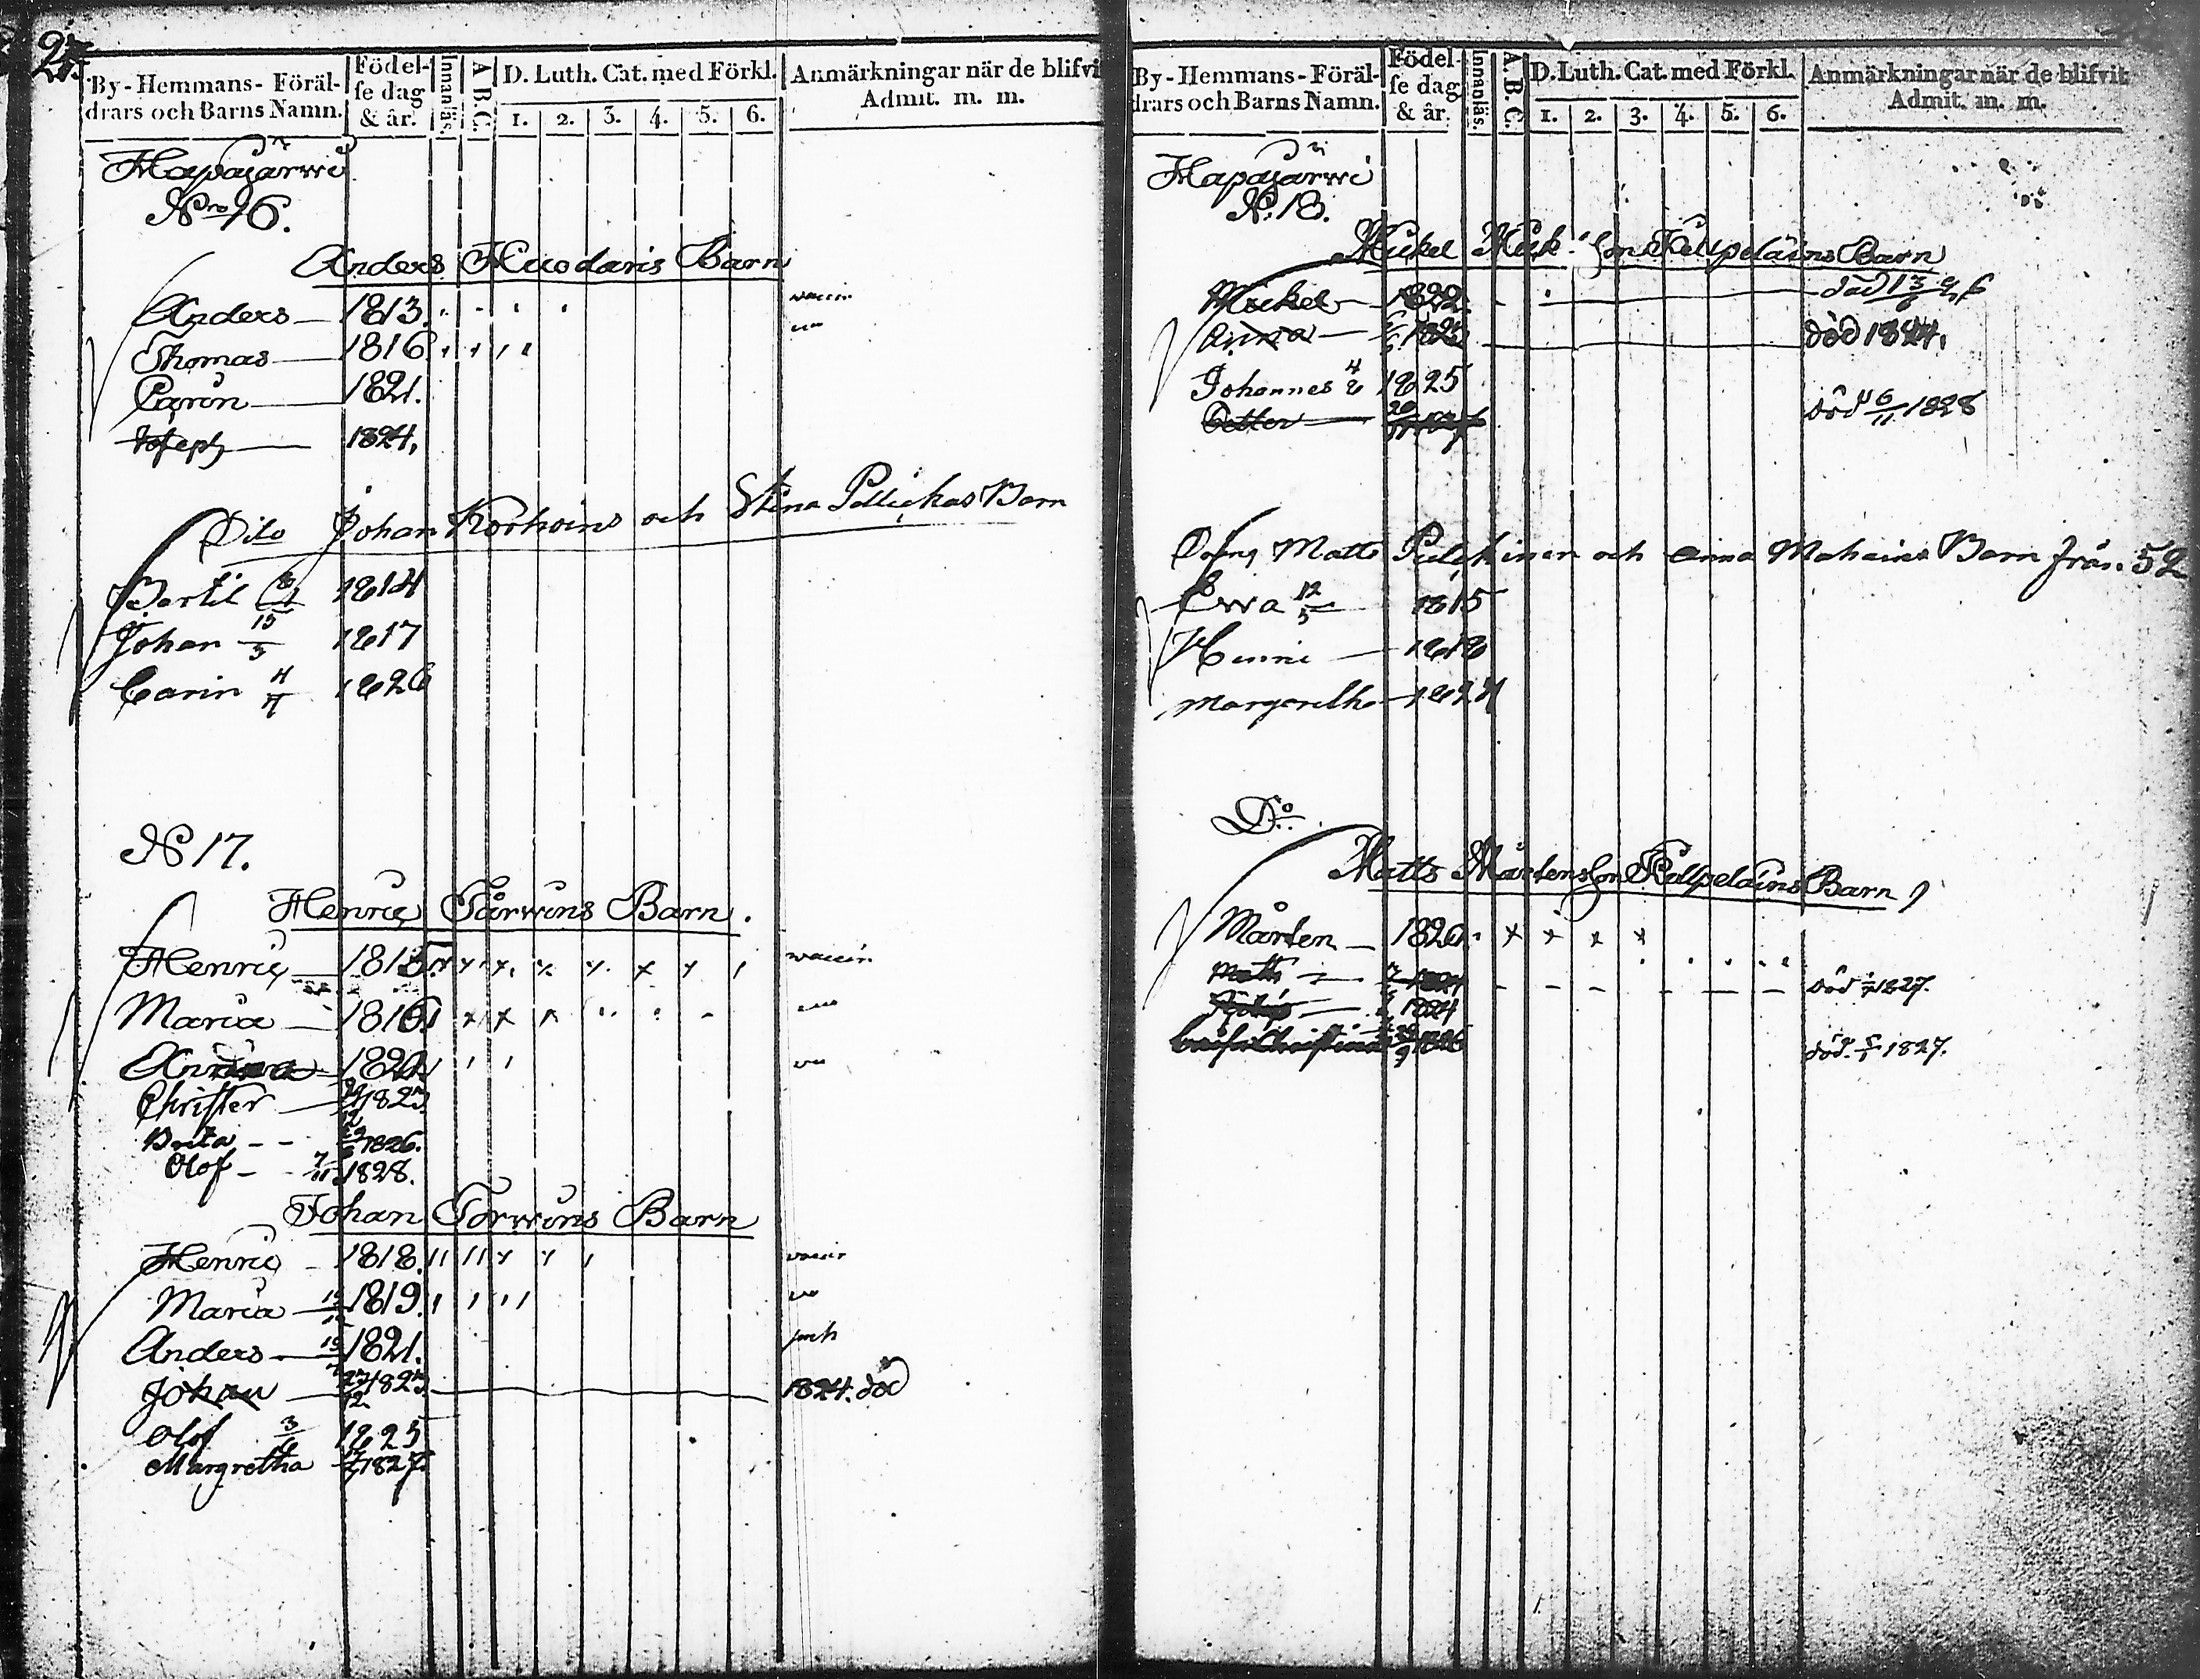 27.
By-Hemmans-Föräl-
drars och Barns Namn.
Födel-
se dag
& år.
Innanläs.
A. B. C.
D. Luth. Cat. med Förkl.
1. 2. 3. 4. 5. 6.
Anmärkningar när de blifvi
Admit. m. m.
Hapajärwi
Nro 16.
Anders Huodaris Barn
Anders — 1813. vaccin
Thomas — 1816
Carin — 1821.
Joseph — 1824.
Dito Johan Korhoins och Stina Barn
Bertil 1814
Johan 15/3 1817
Carin 1826
N 17.
Henric Tårwins Barn.
Henric — 1815. vaccin.
Maria — 1816
Anna — 182
Christer — 1823.
Brita - - 1826.
Olof - - 7/11 1828.
Johan Torwins Barn
Henric - 1818. vaccin
Maria — 1819.
Anders — 1821.
Johan — 27/12 1823. 1824. död
Olof 3/6 1825
Margretha 1827.
By-Hemmans-Föräl-
drars och Barns Namn.
Födel-
se dag
& år.
Innanläs.
A. B. C.
D. Luth. Cat. med Förkl.
1. 2. 3. 4. 5. 6.
Anmärkningar när de blifvit
Admit. m. m.
Hapajärwi
N. 18.
Mickel Mick:son Kellpeläins Barn
Mickel — 1822. död 13
Anna — 182 död 1824.
Johannes 1825
Petter — död 6/11 1828
Dräng Matts och Anna Barn från 52
Ewa 12/5 1815
Henric — 1818
Margaretha — 1824
Do.
Matts Mårtenson Kellpeläins Barn
Mårten — 1820. × × × ×
Matts död 1827.
1824
Christina 1826 död. 1827.